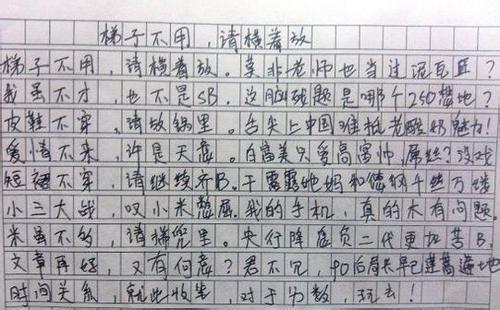 梯子不用,请横着放
梯子不用,请横着放。莫非老师也当过泥瓦匠?
我虽不才,也不是SB。这脑残题是哪个250想地?
皮鞋不穿,请放锅里。舌尖上中国难抵老酸奶魅力!
爱情不来,许是天意。白富美只爱高富帅,屌丝?没戏
短裙不穿,请继续齐B。干露露她妈和德纲千丝万缕
小三大战,叹小米憋屈。我的手机,真的木有问题
米虽不多,请揣兜里。央行降息负二代更加苦B
文章再好,又有何意?君不见,90后局长早已遍地
时间关系,就此收坐,对于分数,玩去!